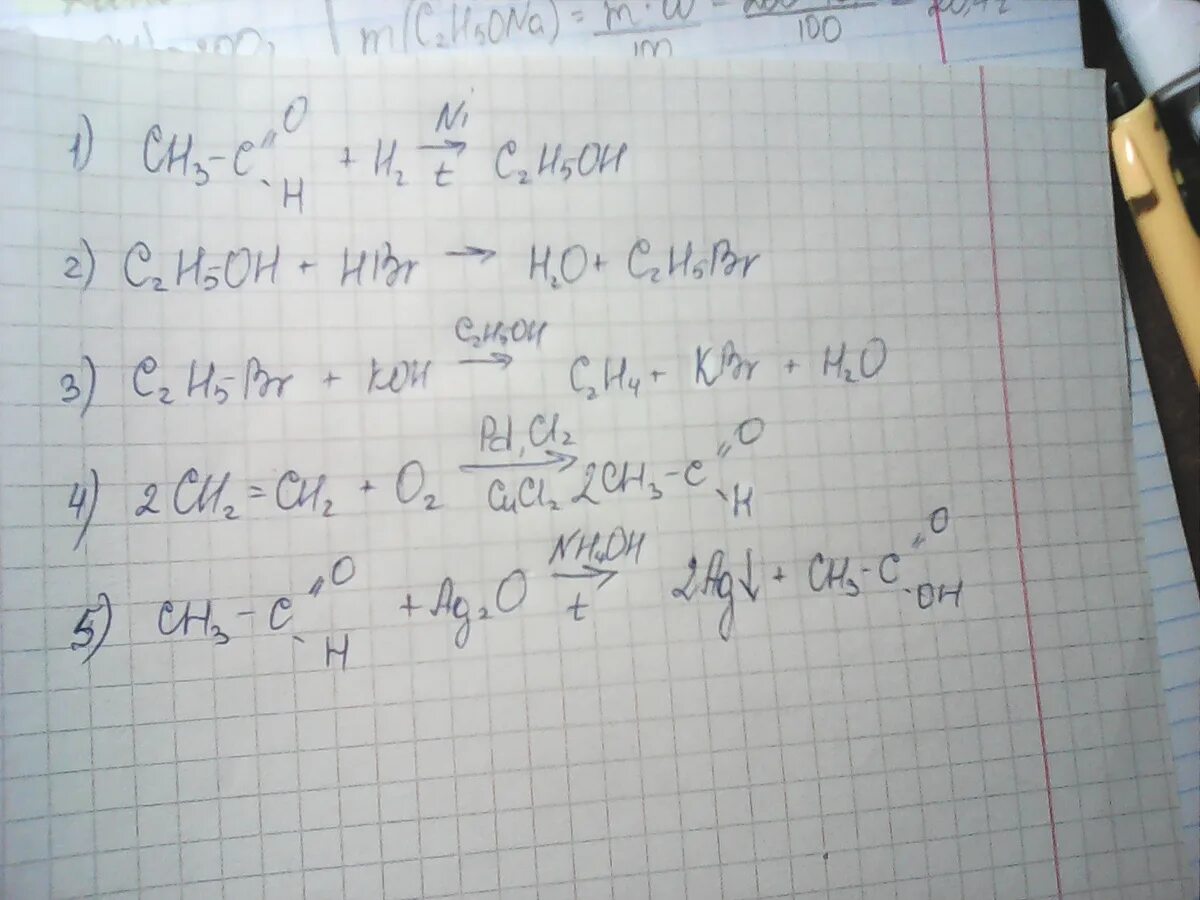 m(C₂H₅ONa) = m · ω / m = / 100 =
1) CH₃-C(=O)-H + H₂ →[Ni, t] C₂H₅OH
2) C₂H₅OH + HBr → H₂O + C₂H₅Br
3) C₂H₅Br + KOH →[C₂H₅OH] C₂H₄ + KBr + H₂O
4) 2CH₂=CH₂ + O₂ →[Pd,Cl₂, CuCl₂] 2CH₃-C(=O)-H
5) CH₃-C(=O)-H + Ag₂O →[NH₄OH, t] 2Ag↓ + CH₃-C(=O)-OH